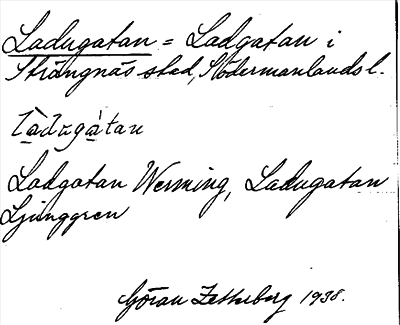 Ladugatan = Ladgatan i
Strängnäs stad, Södermanlands l.
làdugátan
Ladgatan Werming, Ladugatan
Ljunggren
Göran Zetterberg 1938.